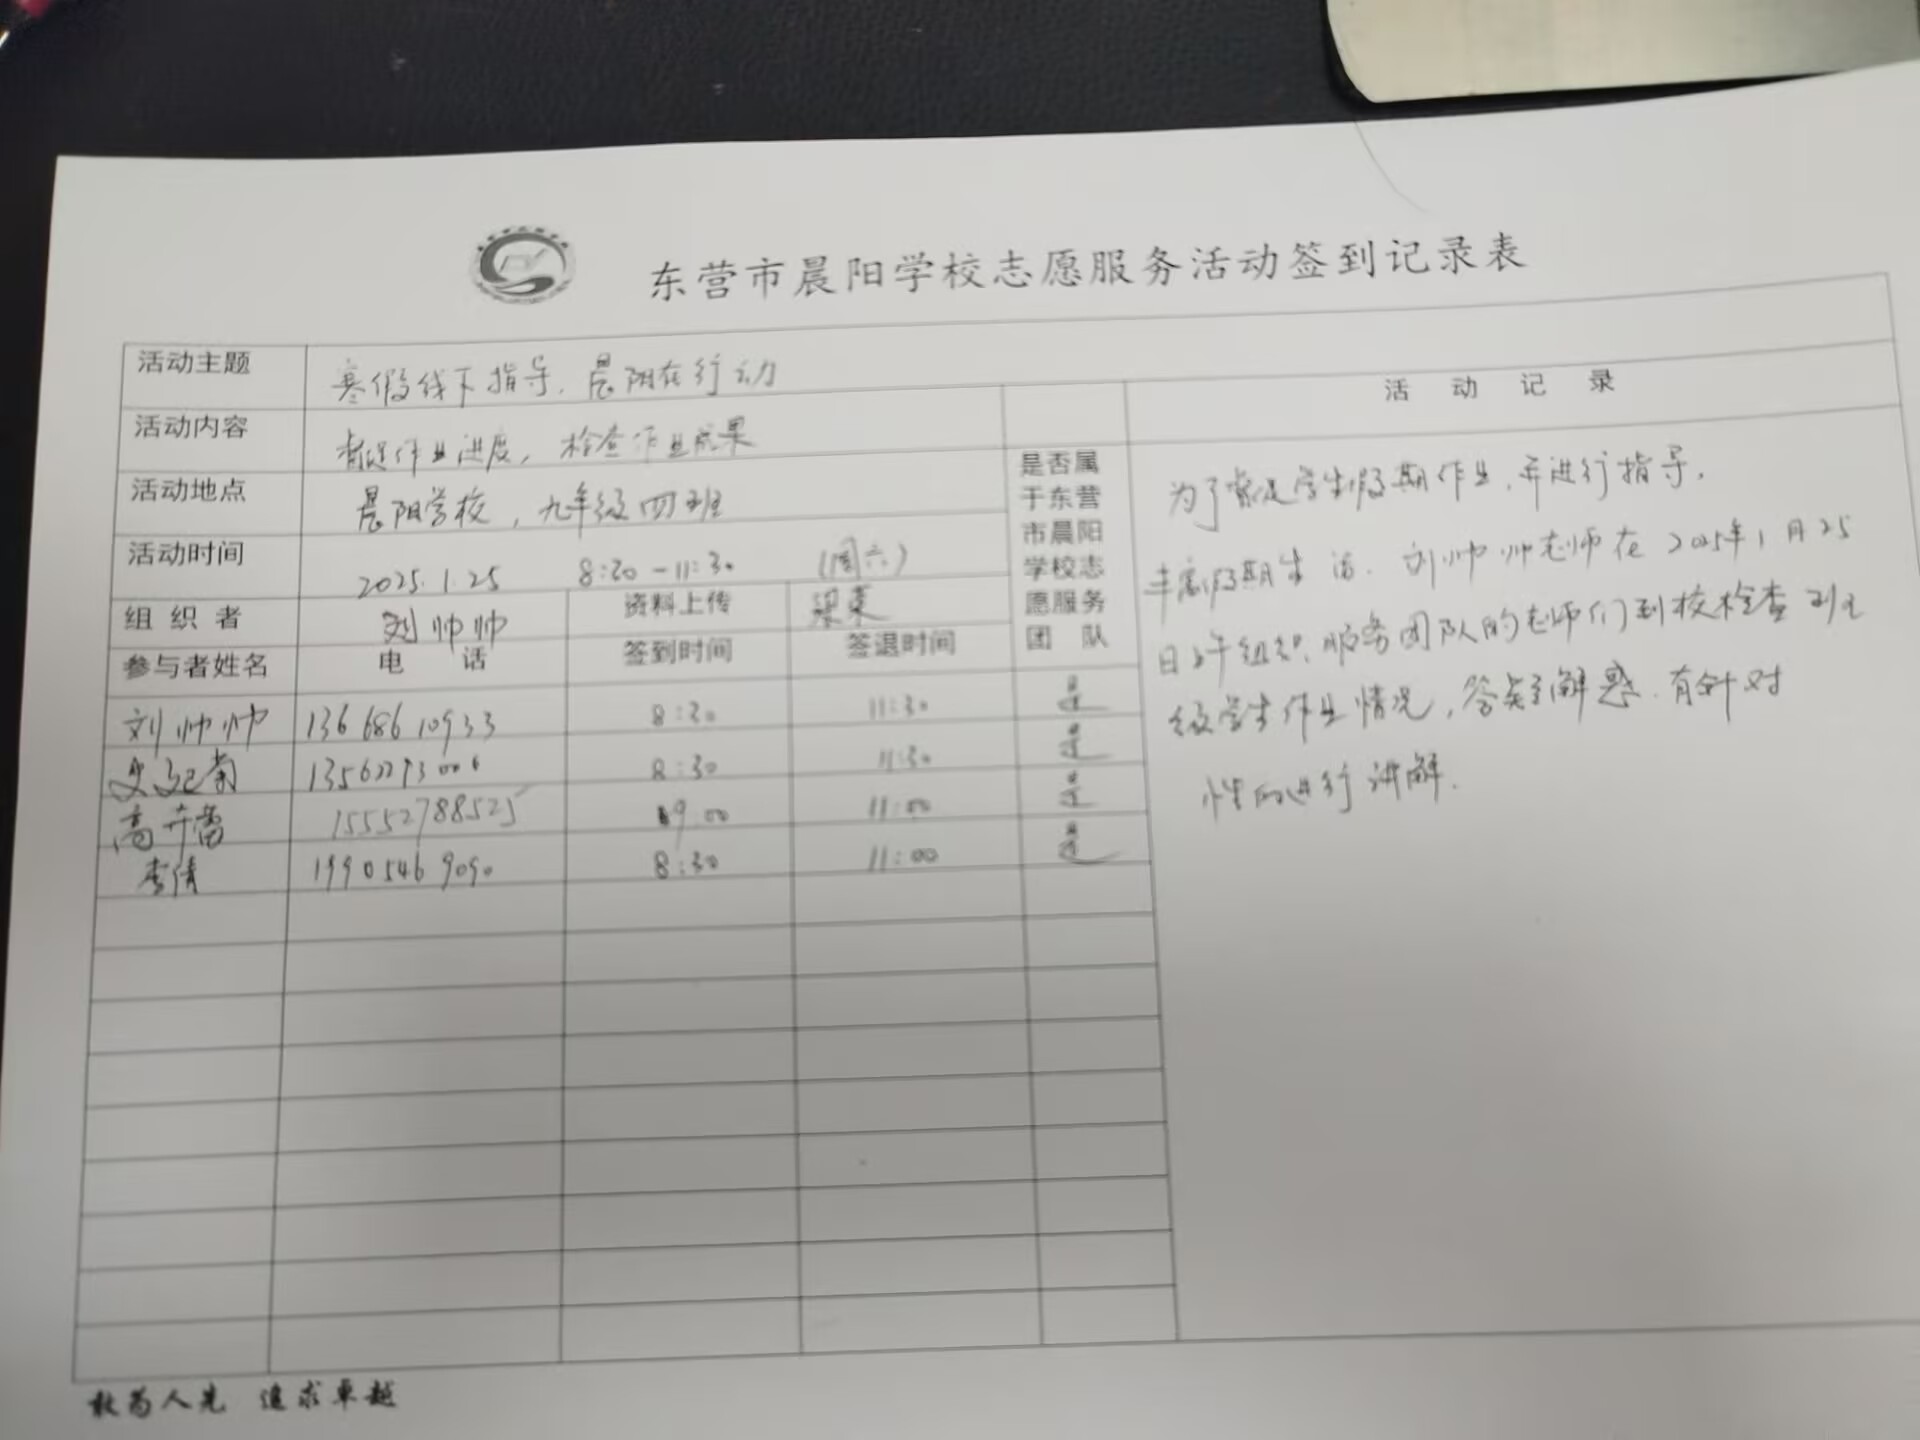 东营市晨阳学校志愿服务活动签到记录表
活动主题 寒假线下指导，晨阳在行动
活动内容 督促作业进度，检查作业成果
活动地点 晨阳学校，九年级四班
活动时间 2025.1.25 8:30-11:30 (周六)
组织者 刘帅帅 资料上传
参与者姓名 电话 签到时间 签退时间 是否属于东营市晨阳学校志愿服务团队
刘帅帅 13668610933 8:30 11:30 是
13562293006 8:30 11:30 是
高卉蕾 15552788525 9:00 11:00 是
李倩 19905469090 8:30 11:00 是
活动记录
为了督促学生假期作业，并进行指导，
丰富假期生活，刘帅帅老师在2025年1月25
日上午组织服务团队的老师们到校检查
级学生作业情况，答疑解惑，有针对
性的进行讲解.
敢为人先 追求卓越